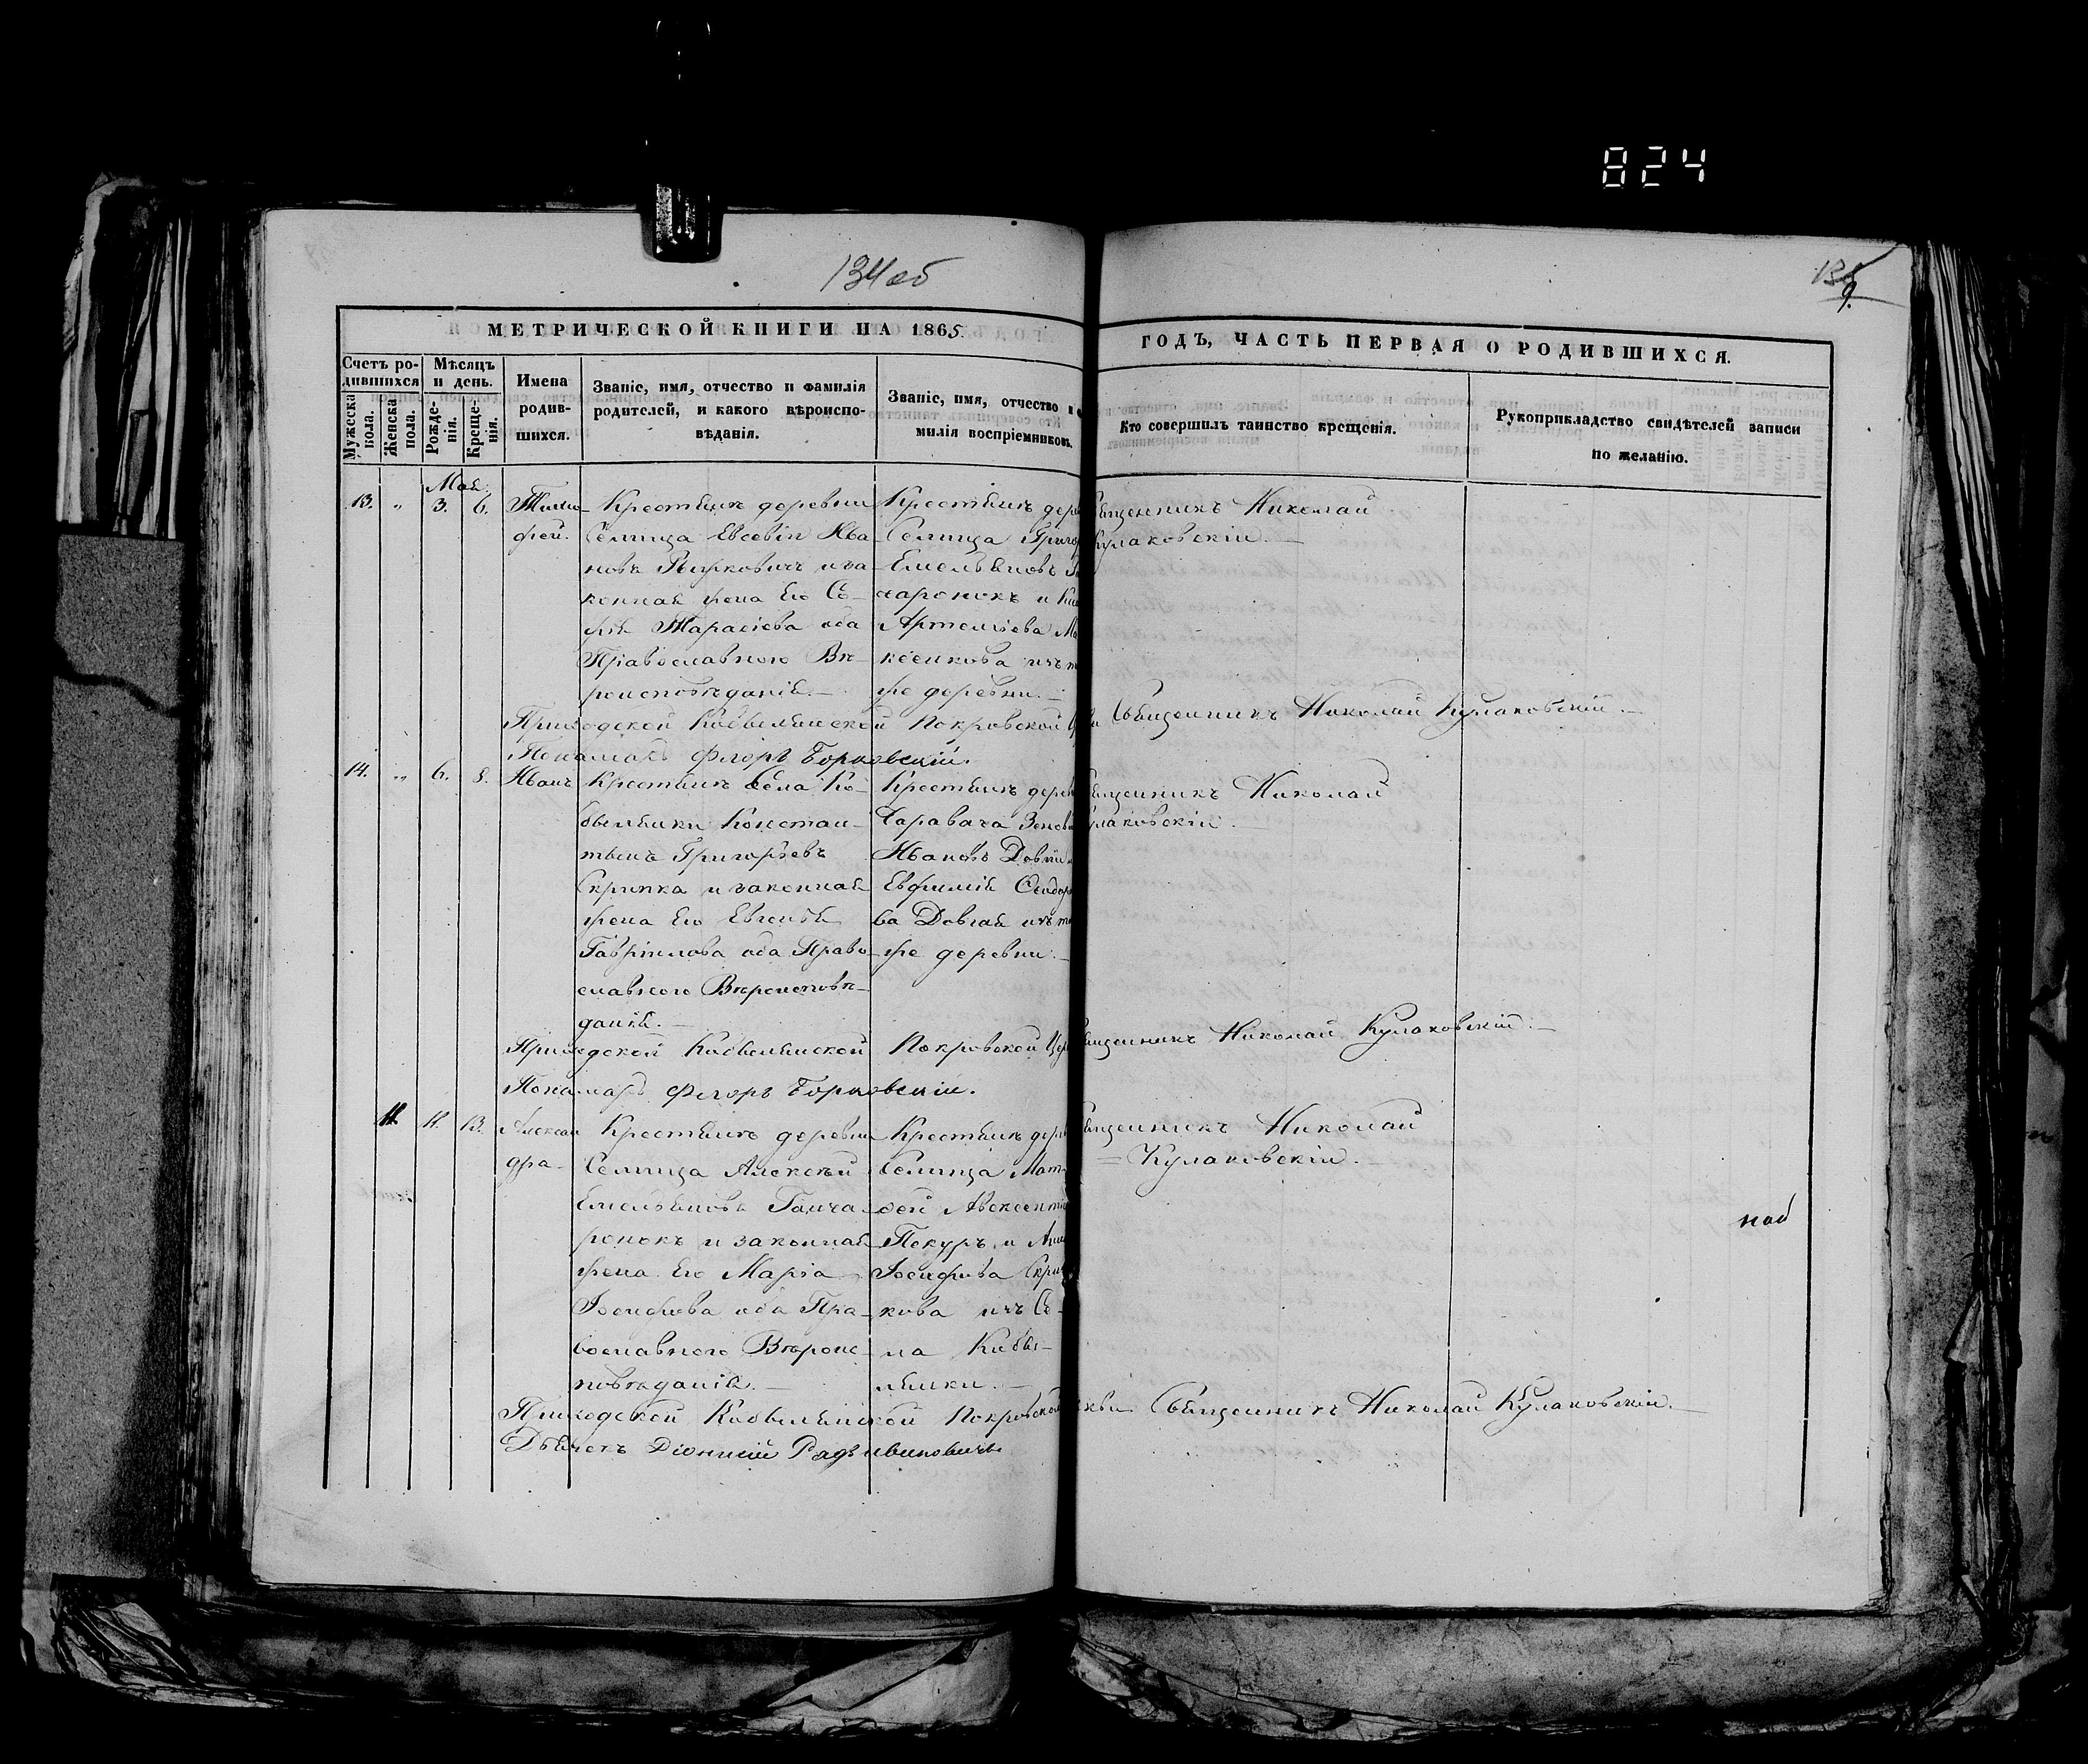 824
134 об
9.
МЕТРИЧЕСКОЙ КНИГИ НА 1865.
ГОДЪ, ЧАСТЬ ПЕРВАЯ О РОДИВШИХСЯ.
Счетъ ро-
дившихся
Мужеска
пола.
Женска
пола.
Мѣсяцъ
и день.
Рожде-
нія.
Креще-
нія.
Имена
родив-
шихся.
Званіе, имя, отчество и фамилія
родителей, и какого вѣроиспо-
вѣданія.
Званіе, имя, отчество и
милія воспріемниковъ.
Кто совершилъ таинство крещенія.
Рукоприкладство свидѣтелей записи
по желанію.
Мая.
13. „ 3. 6.
Тимо-
фей.
Крестьянъ деревни
Селища Евсевій Ива-
новъ и за-
конная жена Его Со-
Тарасіева оба
Православнаго Вѣ-
роисповѣданія.
Крестьянъ дере
Селища Григо
Емельяновъ
чаронокъ и
Артемьева
изъ т
же деревни.
Священникъ Николай
Кулаковскій.
Приходской Кобыльянской Покровской Священникъ Николай Кулаковскій.
Понамарь Флоръ Борковскій.
14. „ 6. 8.
Иванъ
Крестьянъ Села Ко-
быльянки Констан-
тинъ Григорьевъ
Скрипка и законная
жена Его Евгенія
Гаврилова оба Право-
славнаго Вѣроисповѣ-
данія.
Крестьянъ дерев
Зенов
Ивановъ
Евфимія Феодор
ва Довгая изъ т
же деревни.
Священникъ Николай
Кулаковскій.
Приходской Кобыльянской Покровской Цер Священникъ Николай Кулаковскій.
Понамарь Флоръ Борковскій.
11. 11. 13.
Алексан
дра
Крестьянъ деревни
Селища Алексѣй
Емельяновъ Ганча-
ронокъ и законная
жена Его Марія
Іосифова оба Пра-
вославнаго Вѣроис-
повѣданія.
Крестьянъ дерев
Селища Мат-
фей Авксенті
и
Іосифова Скрип
кова изъ Се-
ла Кобы-
лянки.
Священникъ Николай
Кулаковскій.
Приходской Кобыльянской Покровской Священникъ Николай Кулаковскій.
Дьячекъ Діонисій Радзивиновичъ